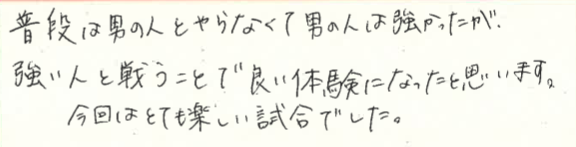 普段は男の人とやらなくて男の人は強かったが、
強い人と戦うことで良い体験になったと思います。
今回はとても楽しい試合でした。